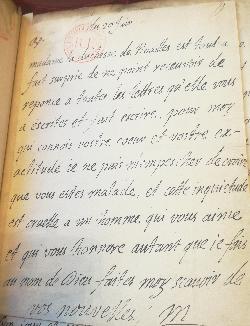 du 29 juin
madame la duchesse de Noailles est tout a
fait surprise de ne point recevoir de
reponce a toutes les lettres qu'elle vous
a escrites et fait escrire, pour moy
qui connois vostre coeur et vostre ex-
actitude ie ne puis m'empescher de croire
que vous estes malade, et cette inquietude
est cruelle a un homme, qui vous aime
et qui vous honnore autant que ie fais
au nom de Dieu faites moy sçavoir de
vos nouvelles